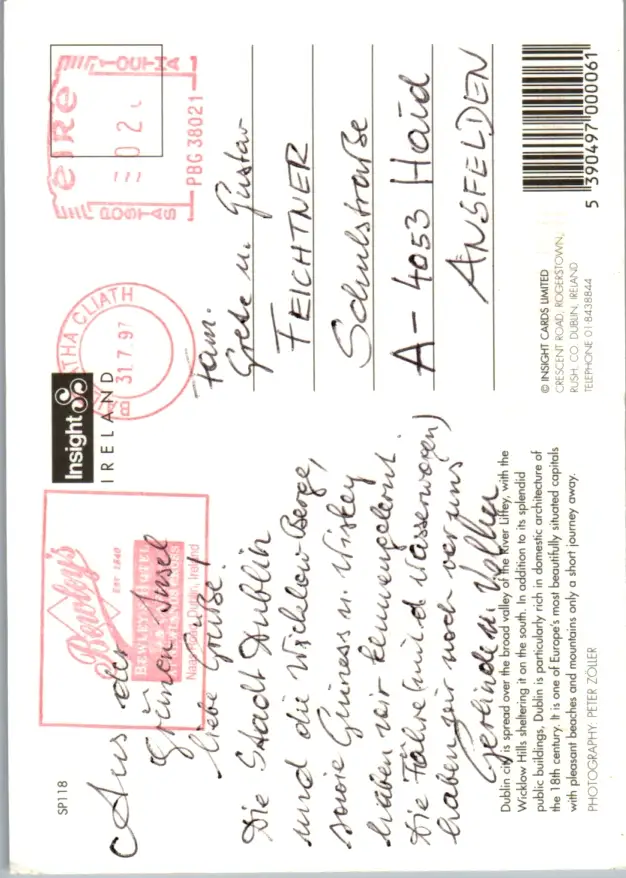 SP118
Insight
IRELAND
Bewley's
EST 1840
BEWLEY'S HOTEL
Naas Road, Dublin, Ireland
Aus der
grünen Insel
liebe Grüße!
Die Stadt Dublin
und die Wicklow Berge,
sowie Guiness u. Wiskey
haben wir kennengelernt.
Die Fähre (mit d. Wasserwogen)
haben wir noch vor uns
Gerlinde u. Volker
Dublin city is spread over the broad valley of the River Liffey, with the
Wicklow Hills sheltering it on the south. In addition to its splendid
public buildings, Dublin is particularly rich in domestic architecture of
the 18th century. It is one of Europe's most beautifully situated capitals
with pleasant beaches and mountains only a short journey away.
PHOTOGRAPHY: PETER ZÖLLER
ATHA CLIATH
31.7.97
eIRe
POSTAS
PBG 38021
Fam.
Grete u. Gustav
FEICHTNER
Schulstraße
A-4053 Haid
ANSFELDEN
© INSIGHT CARDS LIMITED
CRESCENT ROAD, ROGERSTOWN,
RUSH, CO. DUBLIN, IRELAND
TELEPHONE 01-8438844
5 390497 000061